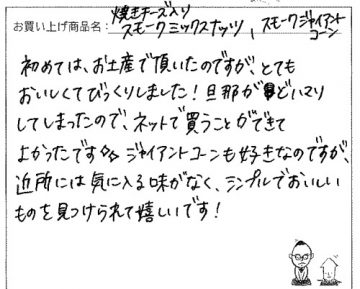 焼きチーズ入り
お買い上げ商品名：スモークミックスナッツ、スモークジャイアントコーン
初めては、お土産で頂いたのですが、とても
おいしくてびっくりしました！旦那がどハマり
してしまったので、ネットで買うことができて
よかったです☆☆ ジャイアントコーンも好きなのですが、
近所には気に入る味がなく、シンプルでおいしい
ものを見つけられて嬉しいです！